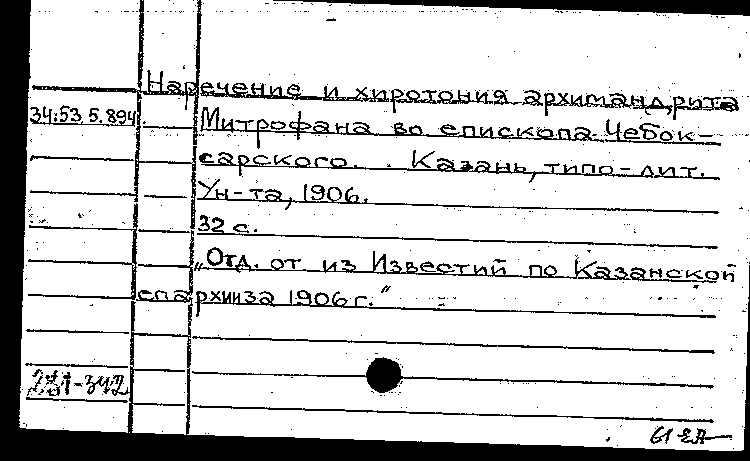 Наречение и хиротония архимандрита
34:53 5.894 Митрофана во епископа Чебок-
сарского. Казань, типо-лит.
Ун-та, 1906.
32 с.
„Отд. от из Известий по Казанской
епархии за 1906 г.“
-342
61